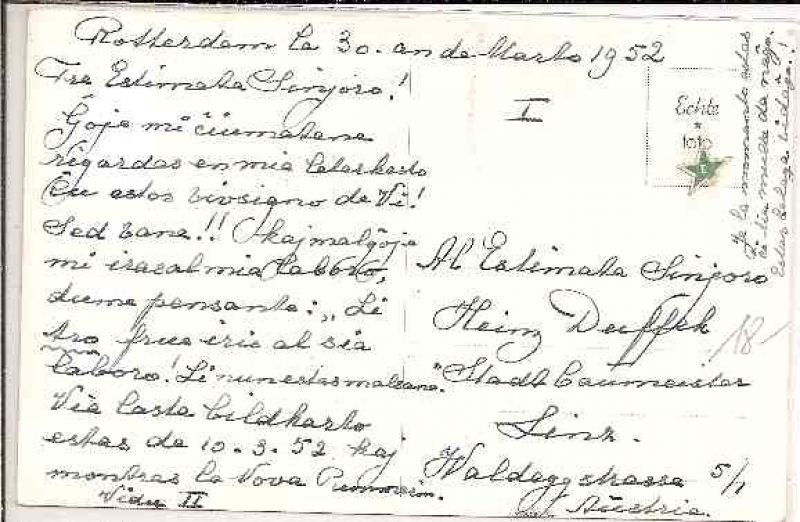 Rotterdam la 30.an de Marto 1952
Tre Estimata Sinjoro!
Ĝoje mi ĉiumatene
rigardas en mia leterkesto
Ĉu estos vivsigno de Vi!
Sed vane!! Kaj malĝoje
mi iras al mia laboro,
dume pensante: „Li
tro frue iris al sia
laboro! Li nun estas malsana."
Via lasta bildkarto
estas de 10.3.52 kaj
montras la Nova
Vidu II
I
Echte
*
foto
E
Al Estimata Sinjoro
Heinz
Stadt Baumeister
Linz.
Waldeggstrasse 5/1
Aŭstria.
18
Je la momento estas
ĉi tiu de neĝo.
Estas